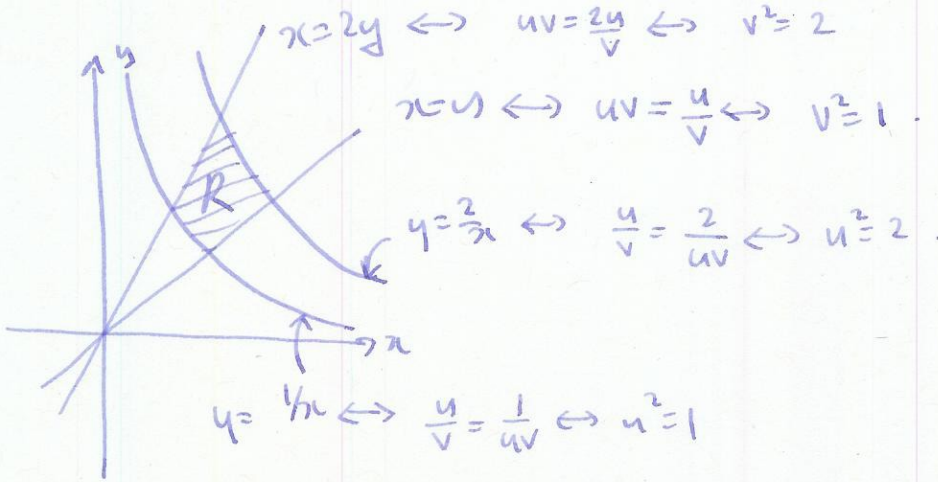 x=2y ⟷ uv = 2u/v ⟷ v² = 2
y
x=y ⟷ uv = u/v ⟷ v² = 1 .
R
y = 2/x ⟷ u/v = 2/uv ⟷ u² = 2 .
x
y = 1/x ⟷ u/v = 1/uv ⟷ u² = 1